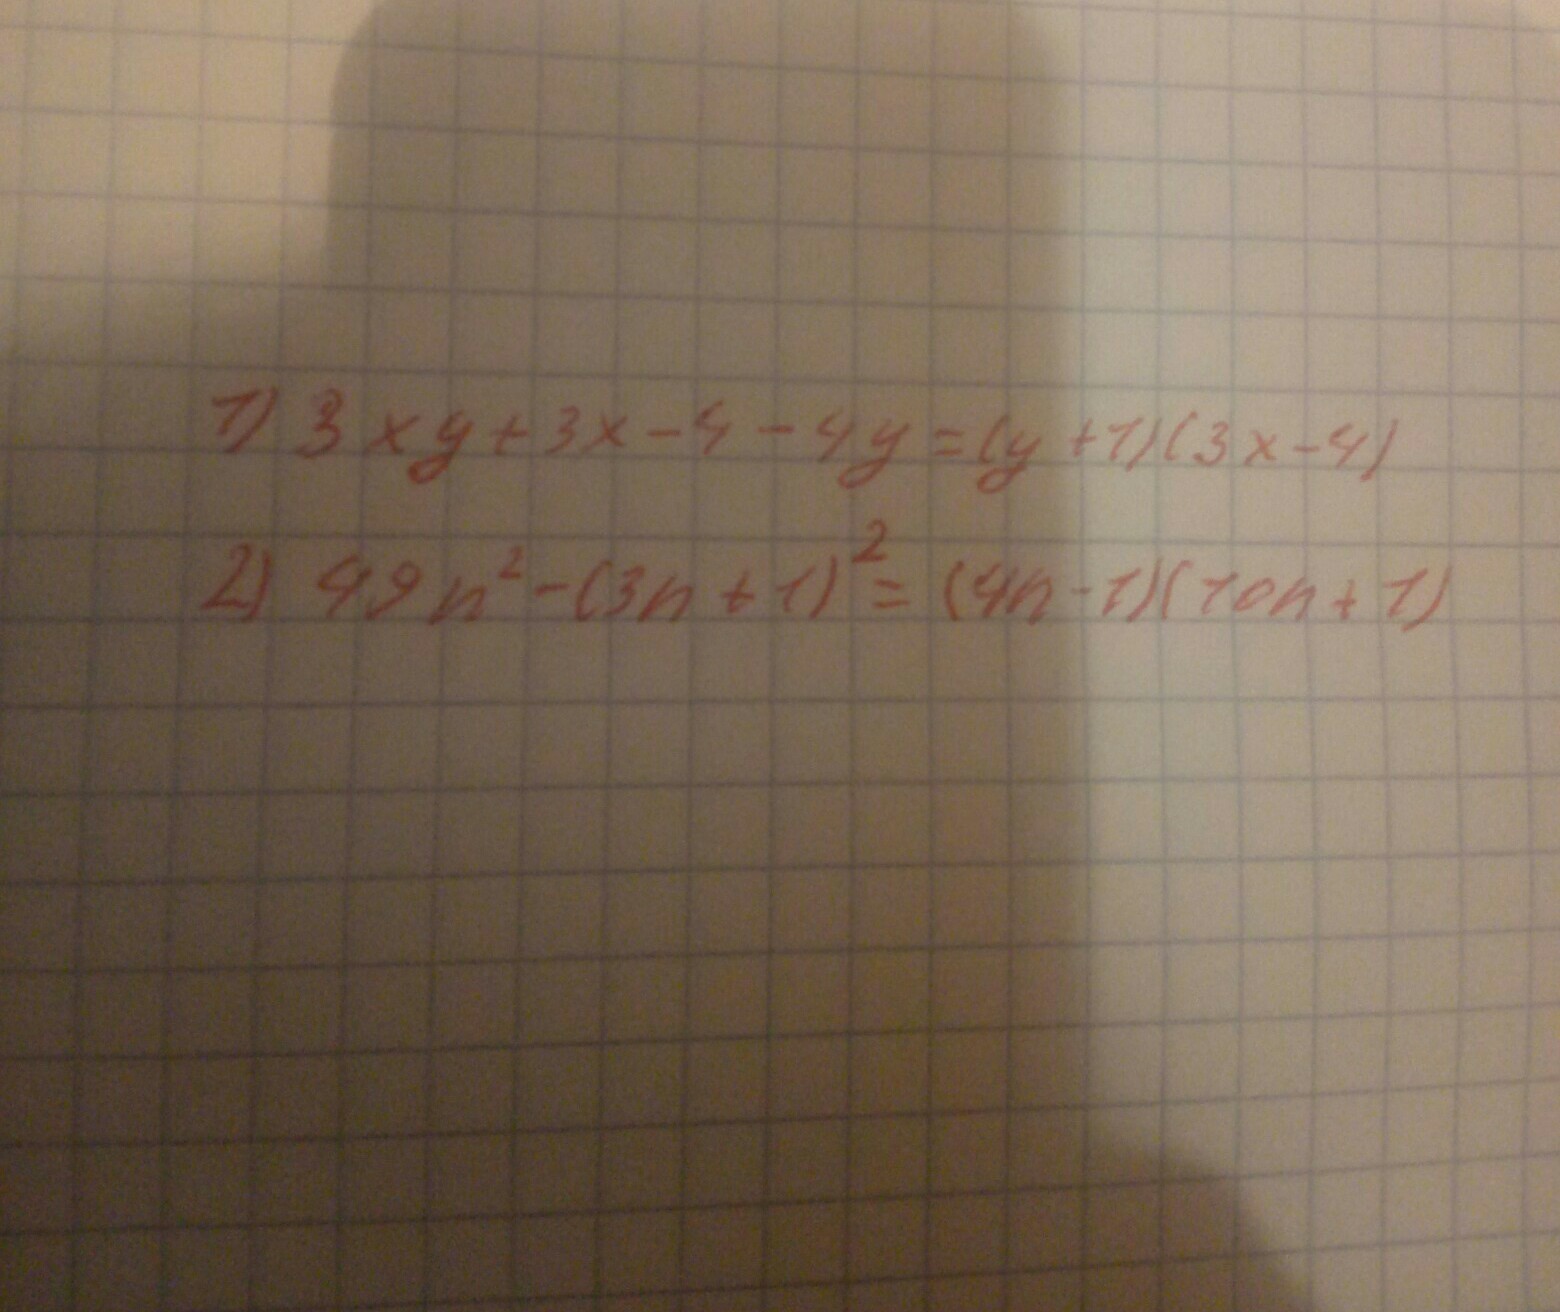 1) 3xy+3x-4-4y=(y+1)(3x-4)
2) 49n²-(3n+1)²=(4n-1)(10n+1)